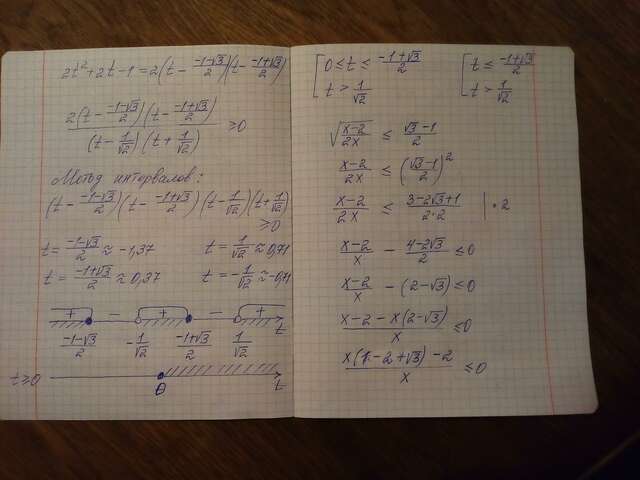 2t² + 2t - 1 = 2(t - (-1-√3)/2)(t - (-1+√3)/2)
2(t - (-1-√3)/2)(t - (-1+√3)/2) / ((t - 1/√2)(t + 1/√2)) ≥ 0
Метод интервалов:
(t - (-1-√3)/2)(t - (-1+√3)/2)(t - 1/√2)(t + 1/√2) ≥ 0
t = (-1-√3)/2 ≈ -1,37 t = 1/√2 ≈ 0,71
t = (-1+√3)/2 ≈ 0,37 t = -1/√2 ≈ -0,71
+ - + - + t
(-1-√3)/2 -1/√2 (-1+√3)/2 1/√2
t ≥ 0 0 t
[ 0 ≤ t ≤ (-1+√3)/2 [ t ≤ (-1+√3)/2
t > 1/√2 t > 1/√2
√((x-2)/2x) ≤ (√3-1)/2
(x-2)/2x ≤ ((√3-1)/2)²
(x-2)/2x ≤ (3-2√3+1)/(2·2) | · 2
(x-2)/x - (4-2√3)/2 ≤ 0
(x-2)/x - (2-√3) ≤ 0
(x-2-x(2-√3))/x ≤ 0
(x(1-2+√3)-2)/x ≤ 0